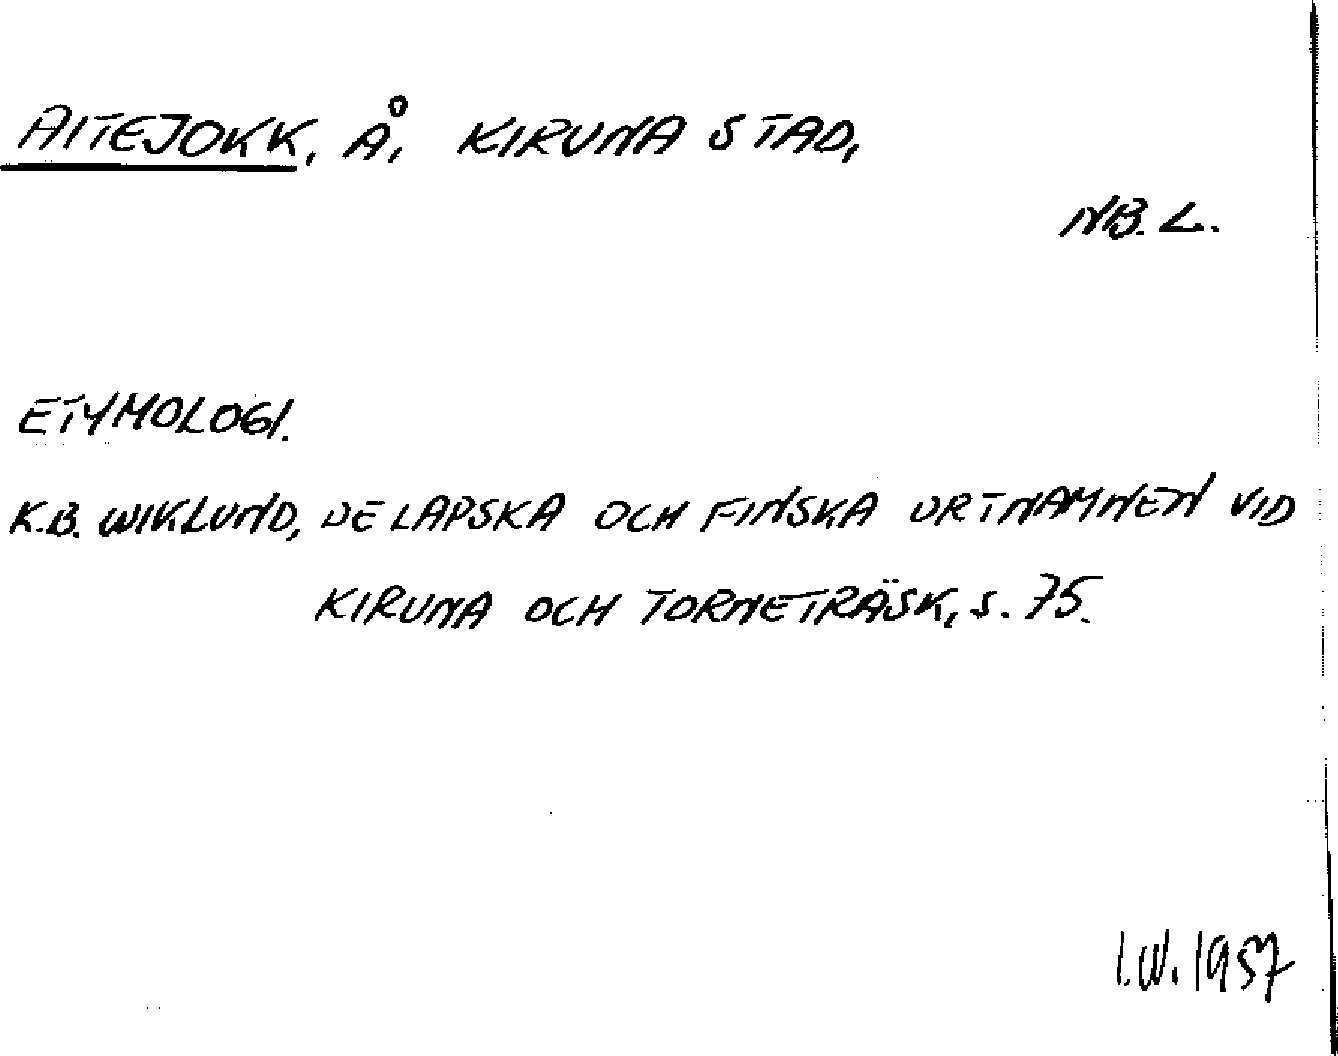 AITEJOKK, Å, KIRUNA STAD,
NB. L.
ETYMOLOGI.
K.B. WIKLUND, DE LAPSKA OCH FINSKA ORTNAMNEN VID
KIRUNA OCH TORNETRÄSK, s. 75.
I.W. 1957